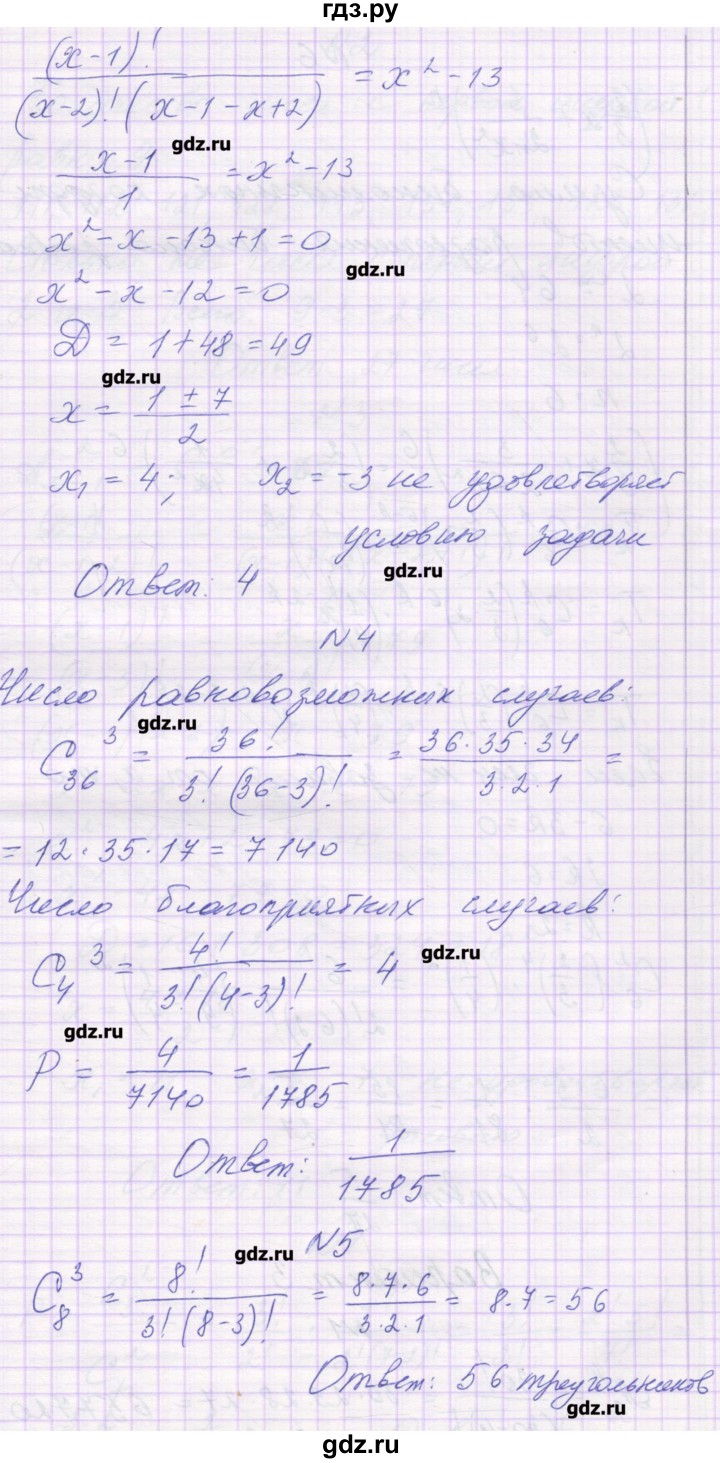 гдз.ру
(x-1)! / (x-2)! (x-1-x+2) = x² - 13
gdz.ru
x-1 / 1 = x² - 13
x² - x - 13 + 1 = 0
gdz.ru
x² - x - 12 = 0
D = 1 + 48 = 49
gdz.ru
x = 1 ± 7 / 2
x₁ = 4; x₂ = -3 не удовлетворяет
условию задачи
gdz.ru
Ответ: 4
N4
Число равновозможных случаев:
gdz.ru
C₃₆³ = 36! / 3! (36-3)! = 36·35·34 / 3·2·1 =
= 12·35·17 = 7140
Число благоприятных случаев:
C₄³ = 4! / 3! (4-3)! = 4
gdz.ru
gdz.ru
P = 4 / 7140 = 1 / 1785
Ответ: 1 / 1785
N5
gdz.ru
C₈³ = 8! / 3! (8-3)! = 8·7·6 / 3·2·1 = 8·7 = 56
Ответ: 56 треугольников
gdz.ru
gdz.ru